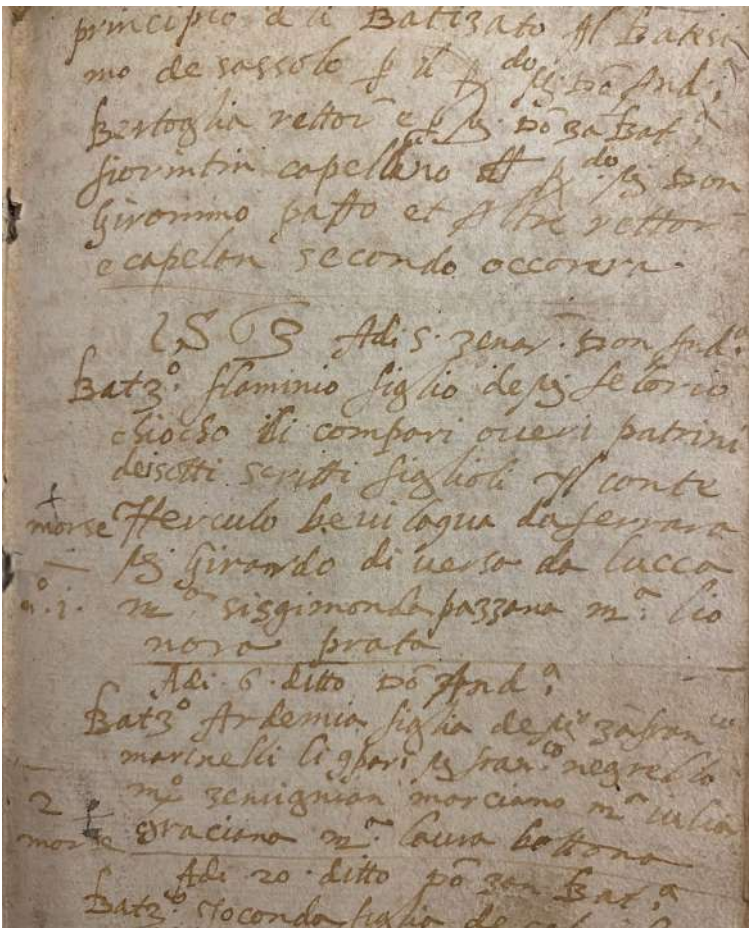 principio d li Batizato Al Batesi
mo de sassolo p il do Dõ And.a
Bertoglia rettor e p Dõ za Bat.a
fiorintin capellano et do Don
Gironimo patto et Altri rettor
e capelon secondo occorera.
1563 Adi 5. zenar. Don And.a
Batz.o flaminio figlio de
chiocho ili compari overi patrini
deisotti scritti figlioli Il conte
+
morse Herculo bevilaqua da ferrara
Girardo di verso da lucca
n.o 1. m.a sisgimonda pazzana m.a lio
nora prata
Adi 6 ditto Dõ And.a
Batz.o Ardemia figlia de zãfran.co
marinelli li 9pari fran.co negrello
2 + zemignian marciano m.a iulia
morse graciana m.a laura bottona
Adi 20 ditto zan Bat.a
Batz.o Joconda figlia de